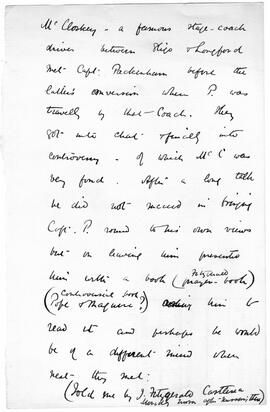 McCloskey - a famous stage-coach
driver between Sligo & Longford
met Capt. Packenham before the
latter's conversion when P. was
travelling by that - Coach. They
got into chat - finally into
controversy - of which McC was
very fond. After a long talk
he did not succeed in bringing
Capt. P. round to his own views
but on leaving him presented
him with a book (Fitzgerald prayer-book)
(Controversial book? Pope & Maguire?) asking him to
read it and perhaps he would
be of a different mind when
next they met.
(Told me by J. Fitzgerald Castlerea